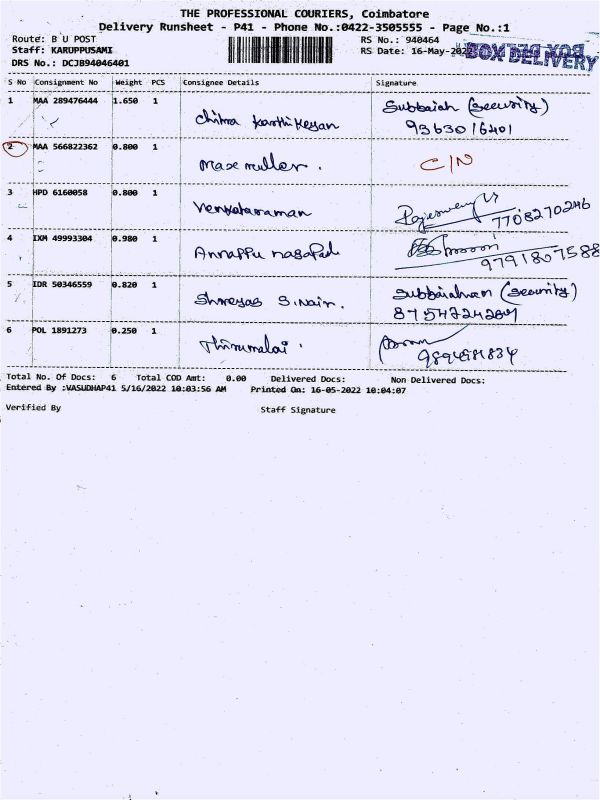 THE PROFESSIONAL COURIERS, Coimbatore
Delivery Runsheet - P41 - Phone No.:0422-3505555 - Page No.:1
Route: B U POST RS No.: 940464
Staff: KARUPPUSAMI RS Date: 16-May-2022
BOX DELIVERY
DRS No.: DCJB94046401
S No Consignment No Weight PCS Consignee Details Signature
1 MAA 289476444 1.650 1 Chitra Karthikeyan Subbaiah (Security)
9363016401
2 MAA 566822362 0.800 1 maxmuller. C/N
3 HPD 6160058 0.800 1 Venkataraman
7708270246
4 IXM 49993304 0.980 1 Annappu
9791807588
5 IDR 50346559 0.820 1 Shreyas S.Nair. Subbaiahan (Security)
8754724284
6 POL 1891273 0.250 1 Thirumalai.
Total No. Of Docs: 6 Total COD Amt: 0.00 Delivered Docs: Non Delivered Docs:
Entered By :VASUDHAP41 5/16/2022 10:03:56 AM Printed On: 16-05-2022 10:04:07
Verified By Staff Signature